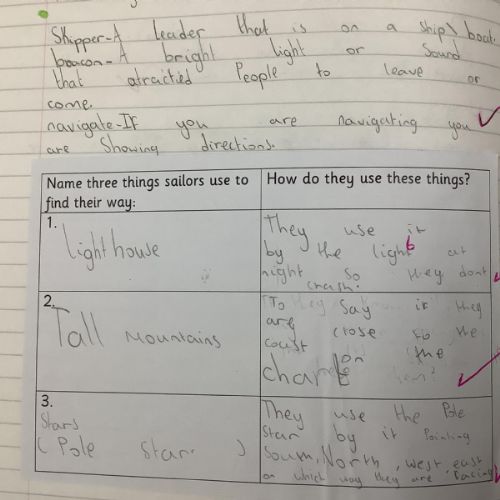 Skipper-A Leader that is on a Ship\boat.
beacon-A bright light or Sound
that atractied People to leave or
come.
navigate-IF you are navigating you
are Showing directions.
Name three things sailors use to
find their way:
How do they use these things?
1.
Light house
They use it
by the light at
night so they dont
crash.
2.
Tall mountains
To Say if they
are close to the
coast on the
chart
3.
Stars
(Pole Star)
They use the Pole
Star by it Pointing
South, North, west, east
on which way they are facing